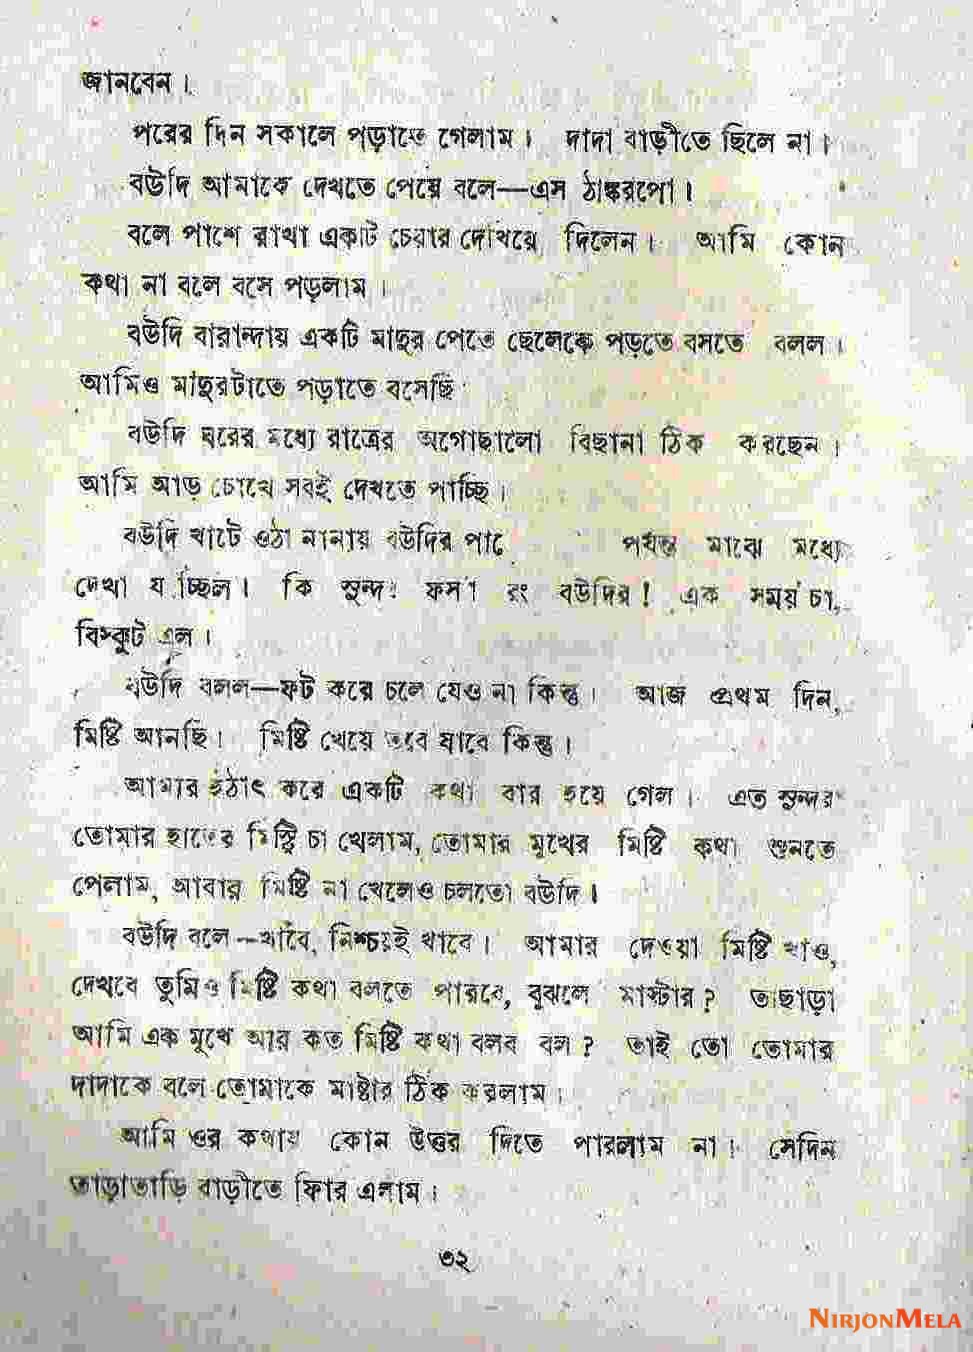 জানবেন।
পরের দিন সকালে পড়াতে গেলাম। দাদা বাড়ীতে ছিলে না।
বউদি আমাকে দেখতে পেয়ে বলে—এস ঠাকুরপো।
বলে পাশে রাখা একটি চেয়ার দেখিয়ে দিলেন। আমি কোন
কথা না বলে বসে পড়লাম।
বউদি বারান্দায় একটি মাদুর পেতে ছেলেকে পড়তে বসতে বলল।
আমিও মাদুরটাতে পড়াতে বসেছি
বউদি ঘরের মধ্যে রাত্রের অগোছালো বিছানা ঠিক করছেন।
আমি আড় চোখে সবই দেখতে পাচ্ছি।
বউদি খাটে ওঠা নামায় বউদির পর্যন্ত মাঝে মধ্যে
দেখা যাচ্ছিল। কি সুন্দর ফর্সা রং বউদির! এক সময় চা,
বিস্কুট এল।
বউদি বলল—ফট করে চলে যেও না কিন্তু। আজ প্রথম দিন,
মিষ্টি আনছি। মিষ্টি খেয়ে তবে যাবে কিন্তু।
আমার হঠাৎ করে একটি কথা বার হয়ে গেল। এত সুন্দর
তোমার হাতের মিস্টি চা খেলাম, তোমার মুখের মিষ্টি কথা শুনতে
পেলাম, আবার মিষ্টি না খেলেও চলতো বউদি।
বউদি বলে—খাবে, নিশ্চয়ই খাবে। আমার দেওয়া মিষ্টি খাও,
দেখবে তুমিও মিষ্টি কথা বলতে পারবে, বুঝলে মাস্টার? তাছাড়া
আমি এক মুখে আর কত মিষ্টি কথা বলব বল? তাই তো তোমার
দাদাকে বলে তোমাকে মাষ্টার ঠিক করলাম।
আমি ওর কথায় কোন উত্তর দিতে পারলাম না। সেদিন
তাড়াতাড়ি বাড়ীতে ফিরে এলাম।
৩২
NIRJONMELA